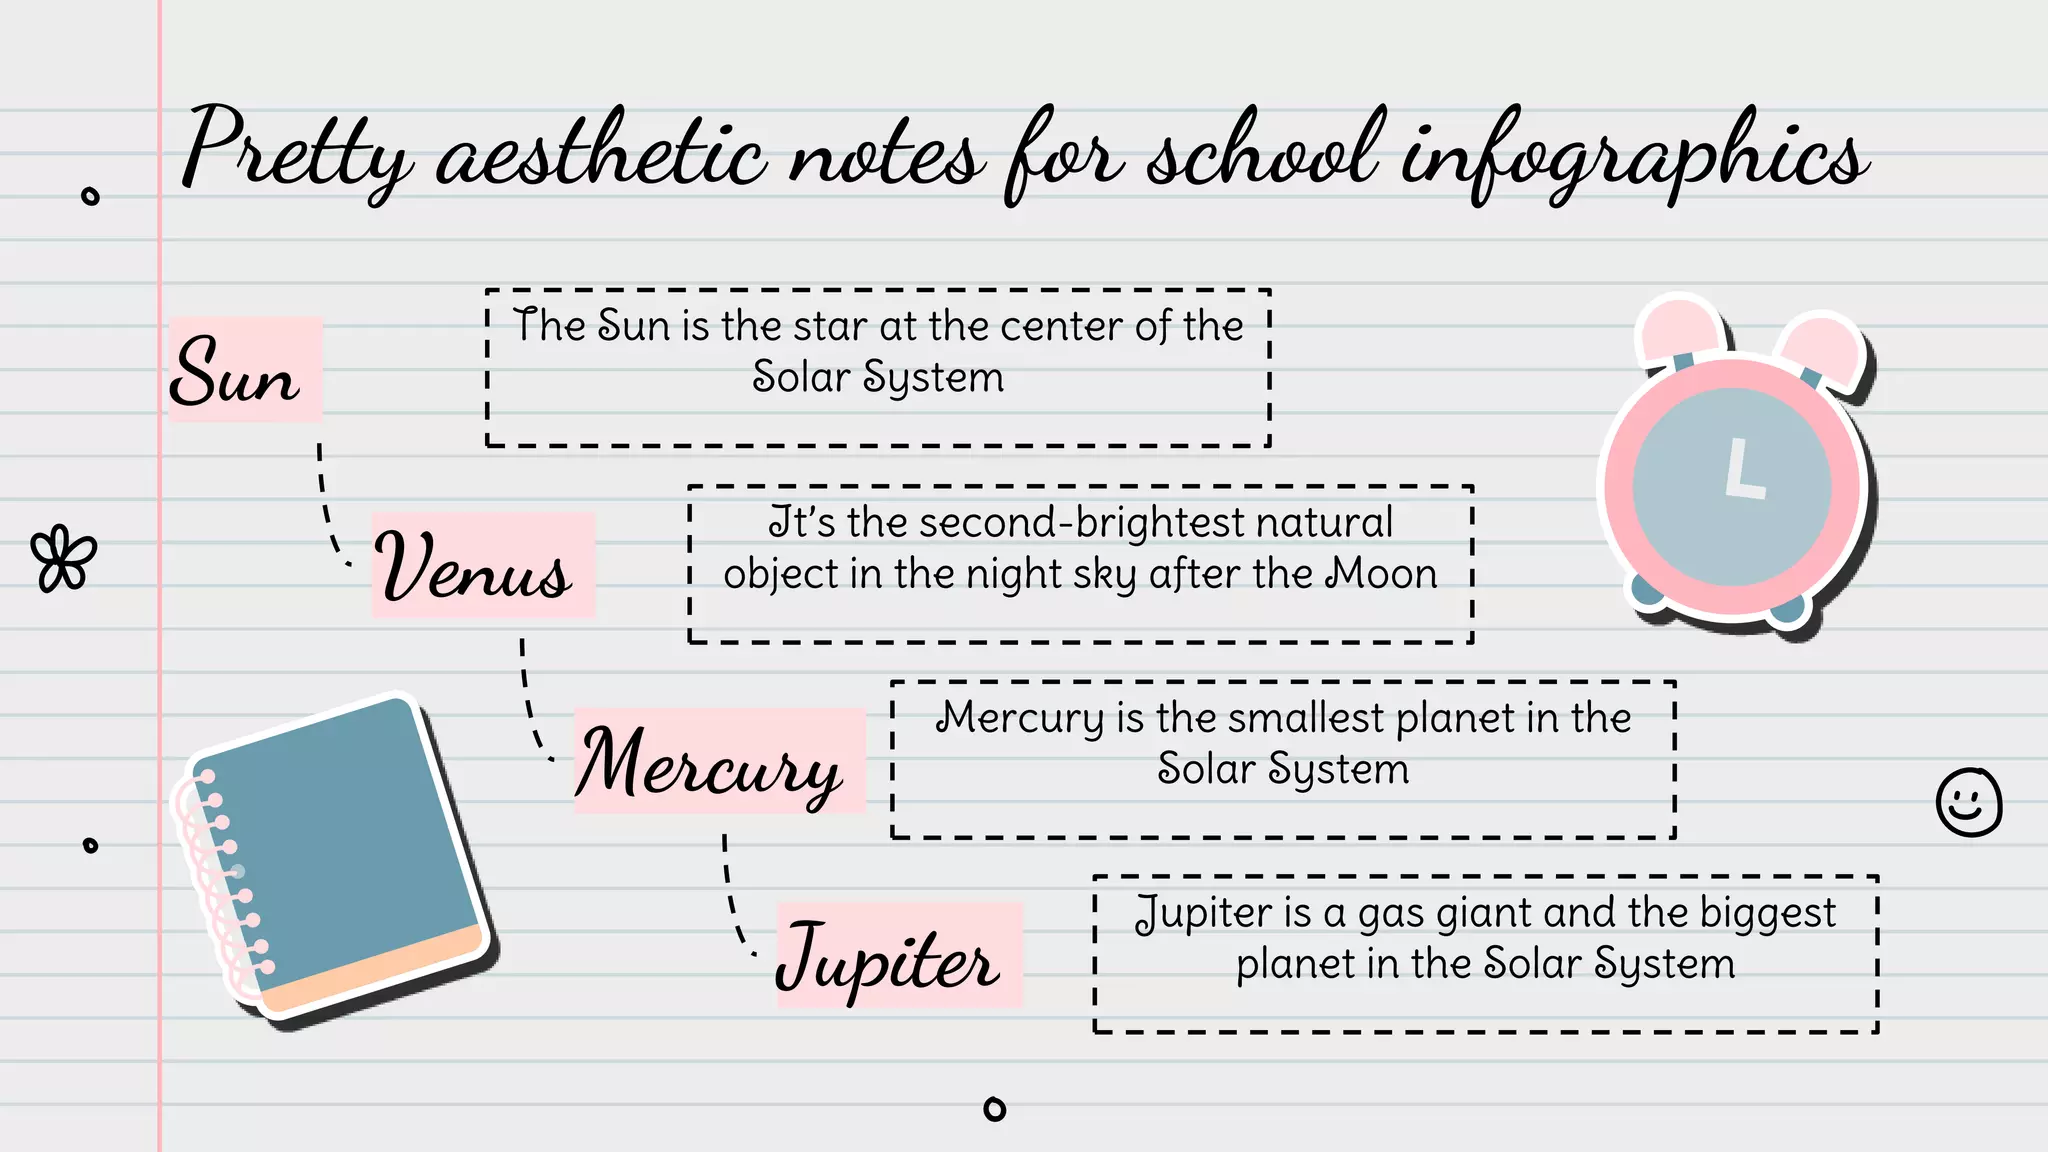 Pretty aesthetic notes for school infographics
Sun
The Sun is the star at the center of the
Solar System
Venus
It’s the second-brightest natural
object in the night sky after the Moon
Mercury
Mercury is the smallest planet in the
Solar System
Jupiter
Jupiter is a gas giant and the biggest
planet in the Solar System